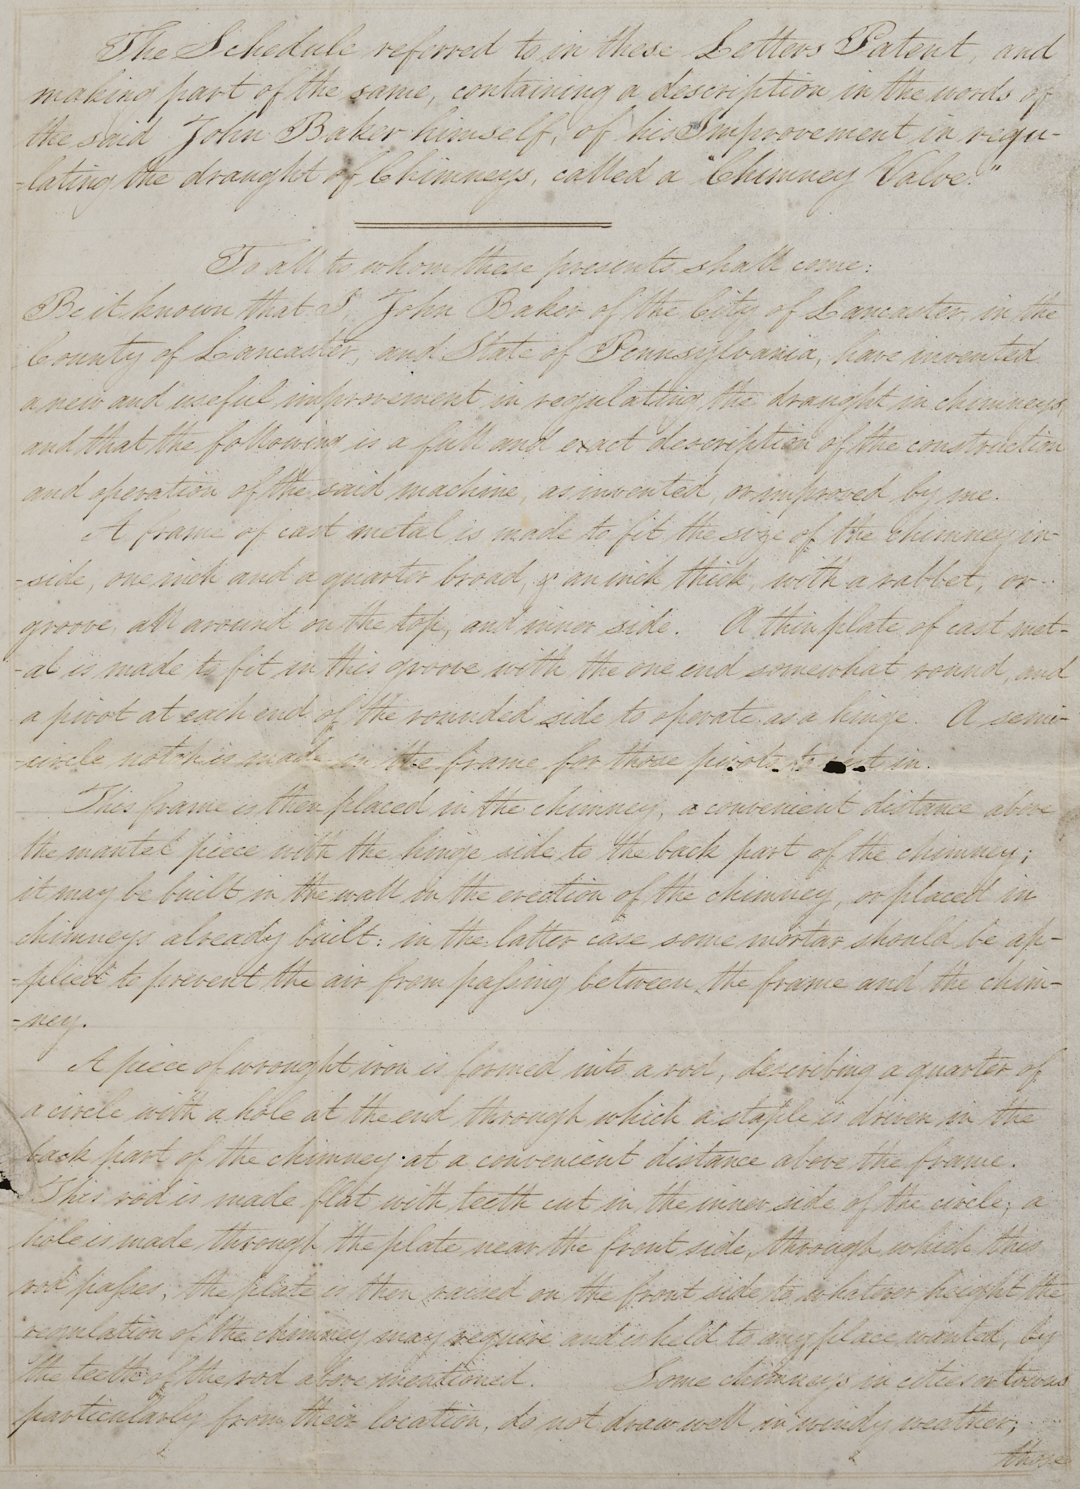 The Schedule referred to in these Letters Patent, and
making part of the same, containing a description in the words of
the said John Baker himself, of his Improvement in regu-
-lating the draught of Chimneys, called a "Chimney Valve."
To all to whom these presents shall come:
Be it known that I, John Baker of the City of Lancaster, in the
County of Lancaster, and State of Pennsylvania, have invented
a new and useful improvement in regulating the draught in chimneys,
and that the following is a full and exact description of the construction
and operation of the said machine, as invented, or improved by me.
A frame of cast metal is made to fit the size of the chimney in-
-side, one inch and a quarter broad, & an inch thick, with a rabbet, or
groove, all around on the top, and inner side. A thin plate of cast met-
-al is made to fit in this groove with the one end somewhat round, and
a pivot at each end of the rounded side to operate as a hinge. A semi-
-circle notch is made in the frame for those pivots to in.
This frame is then placed in the chimney, a convenient distance above
the mantel piece with the hinge side to the back part of the chimney;
it may be built in the wall on the erection of the chimney, or placed in
chimneys already built: in the latter case some mortar should be ap-
-plied to prevent the air from passing between the frame and the chim-
-ney.
A piece of wrought iron is formed into a rod, describing a quarter of
a circle with a hole at the end through which a staple is driven in the
back part of the chimney at a convenient distance above the frame.
This rod is made flat with teeth cut in the inner side of the circle; a
hole is made through the plate near the front side, through which this
rod passes, the plate is then raised on the front side to whatever height the
regulation of the chimney may require and is held to any place wanted, by
the teeth of the rod above mentioned. Some chimneys in cities or towns
particularly from their location, do not draw well in windy weather;
those